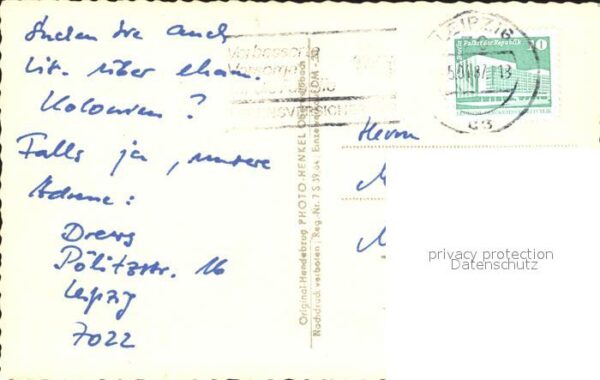 Suchen Sie auch
Lit. über ehem.
Kolonien?
Falls ja, unsere
Adresse:
Drews
Pölitzstr. 16
Leipzig
7022
Verbesserte
LEIPZIG
87
Palast der Republik
10
Herrn
M
M
Original-Handabzug PHOTO-HENKEL
Nachdruck verboten; Reg.-Nr. 7 S 39/64
privacy protection
Datenschutz